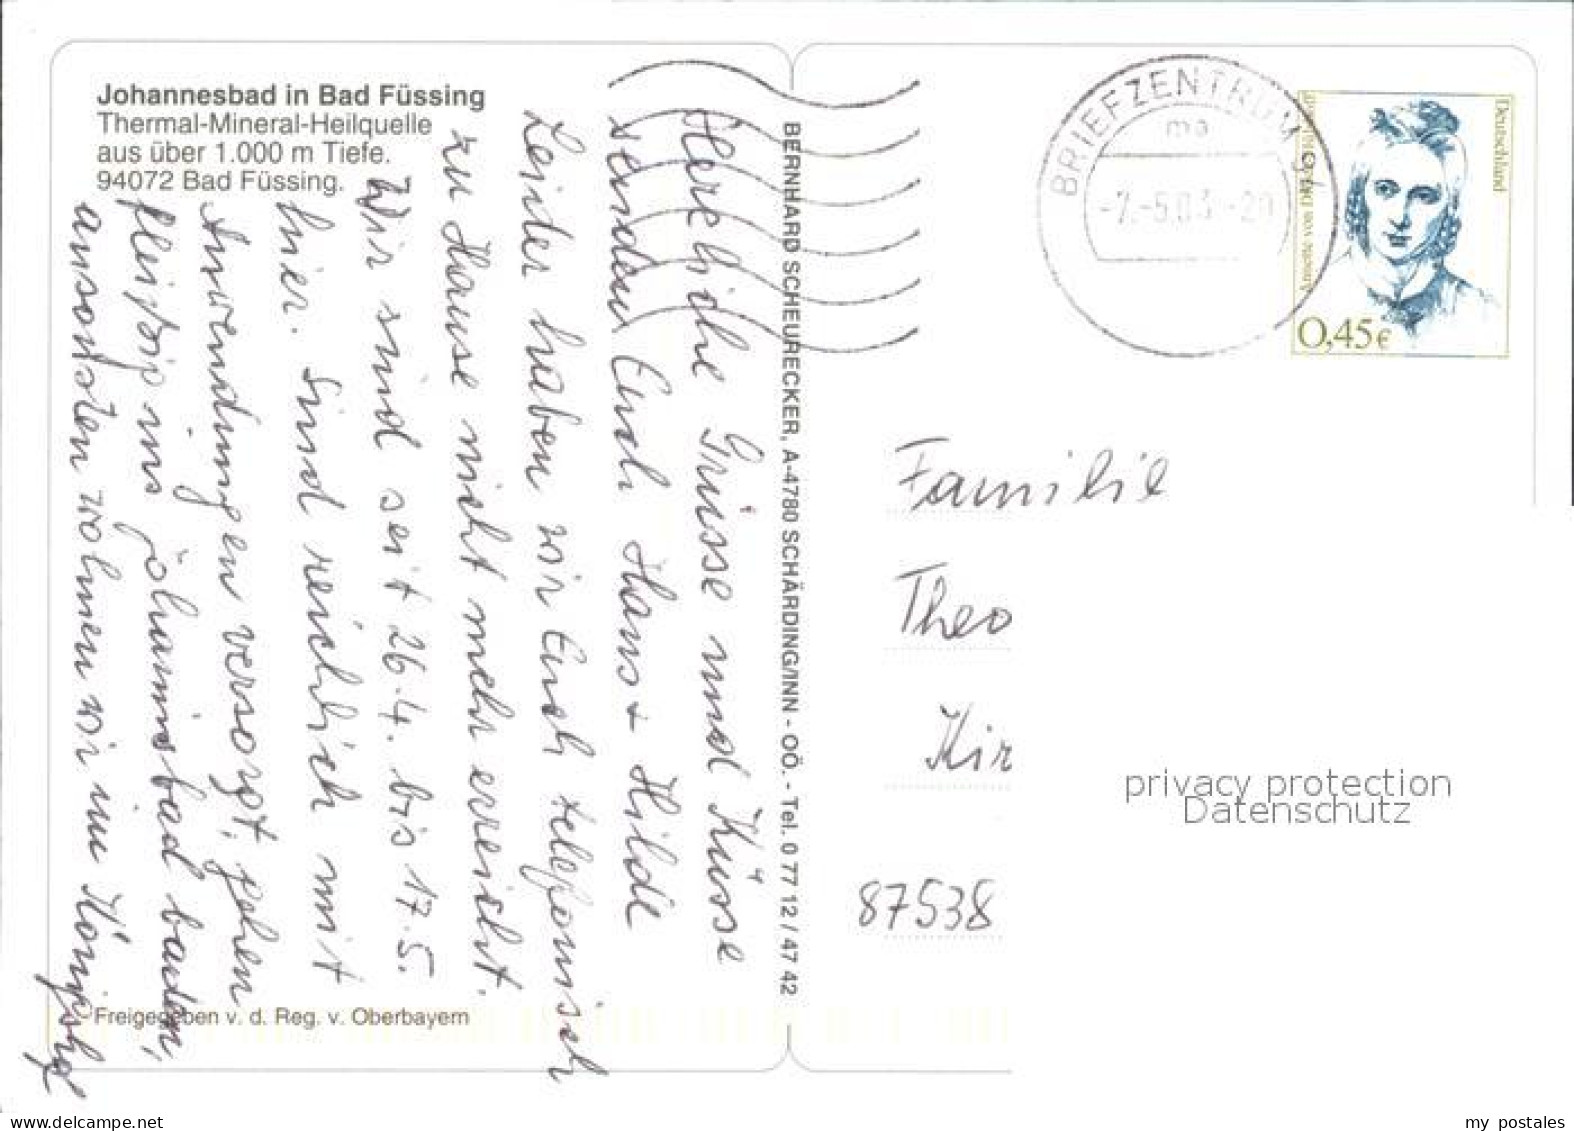 Johannesbad in Bad Füssing
Thermal-Mineral-Heilquelle
aus über 1.000 m Tiefe.
94072 Bad Füssing.
Herzliche Grüsse und Küsse
senden Euch Hans + Hilde
Leider haben wir Euch telefonisch
zu Hause nicht mehr erreicht.
Wir sind seit 26.4. bis 17.5.
hier. Sind reichlich mit
Anwendungen versorgt, gehen
fleißig ins Johannisbad baden,
ansonsten wohnen wir im Königshof
Freigegeben v. d. Reg. v. Oberbayern
BERNHARD SCHEURECKER, A-4780 SCHÄRDING/INN - OÖ. - Tel. 0 77 12 / 47 42
BRIEFZENTRUM 94
ma
-7.-5.03-20
Deutschland
Annette von Droste-Hülshoff
0,45€
Familie
Theo
Kir
87538
privacy protection
Datenschutz
my postales